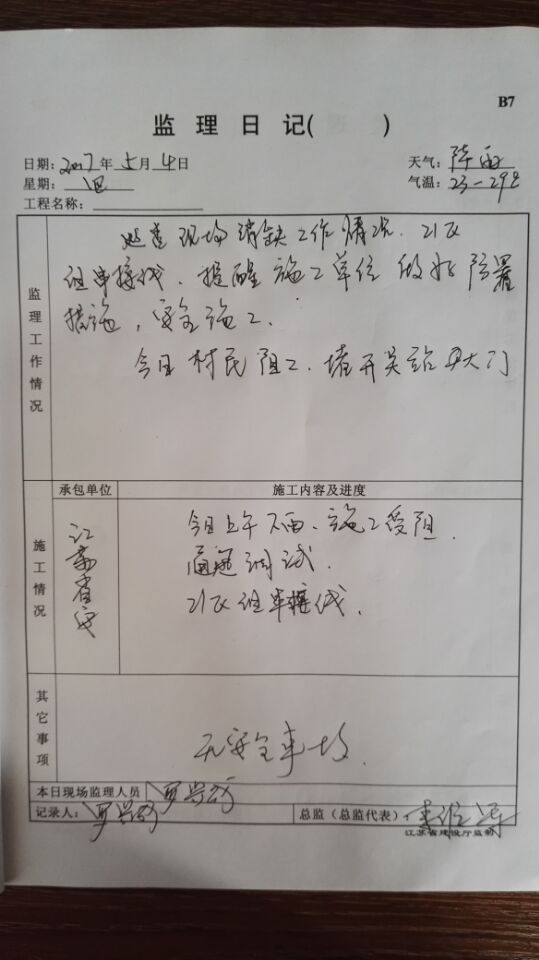 B7
监理日记( )
日期: 2017年5月4日
天气: 阵雨
星期: 四
气温: 23-29℃
工程名称:
监理工作情况
巡查现场消缺工作情况. 21区
组串接线. 提醒施工单位做好防暑
措施, 安全施工.
今日村民阻工. 堵开关站大门
承包单位
施工内容及进度
施工情况
江苏省安
今日上午下雨、施工受阻.
通讯调试.
21区组串接线.
其它事项
无安全事故.
本日现场监理人员
记录人:
总监（总监代表）:
江苏省建设厅监制